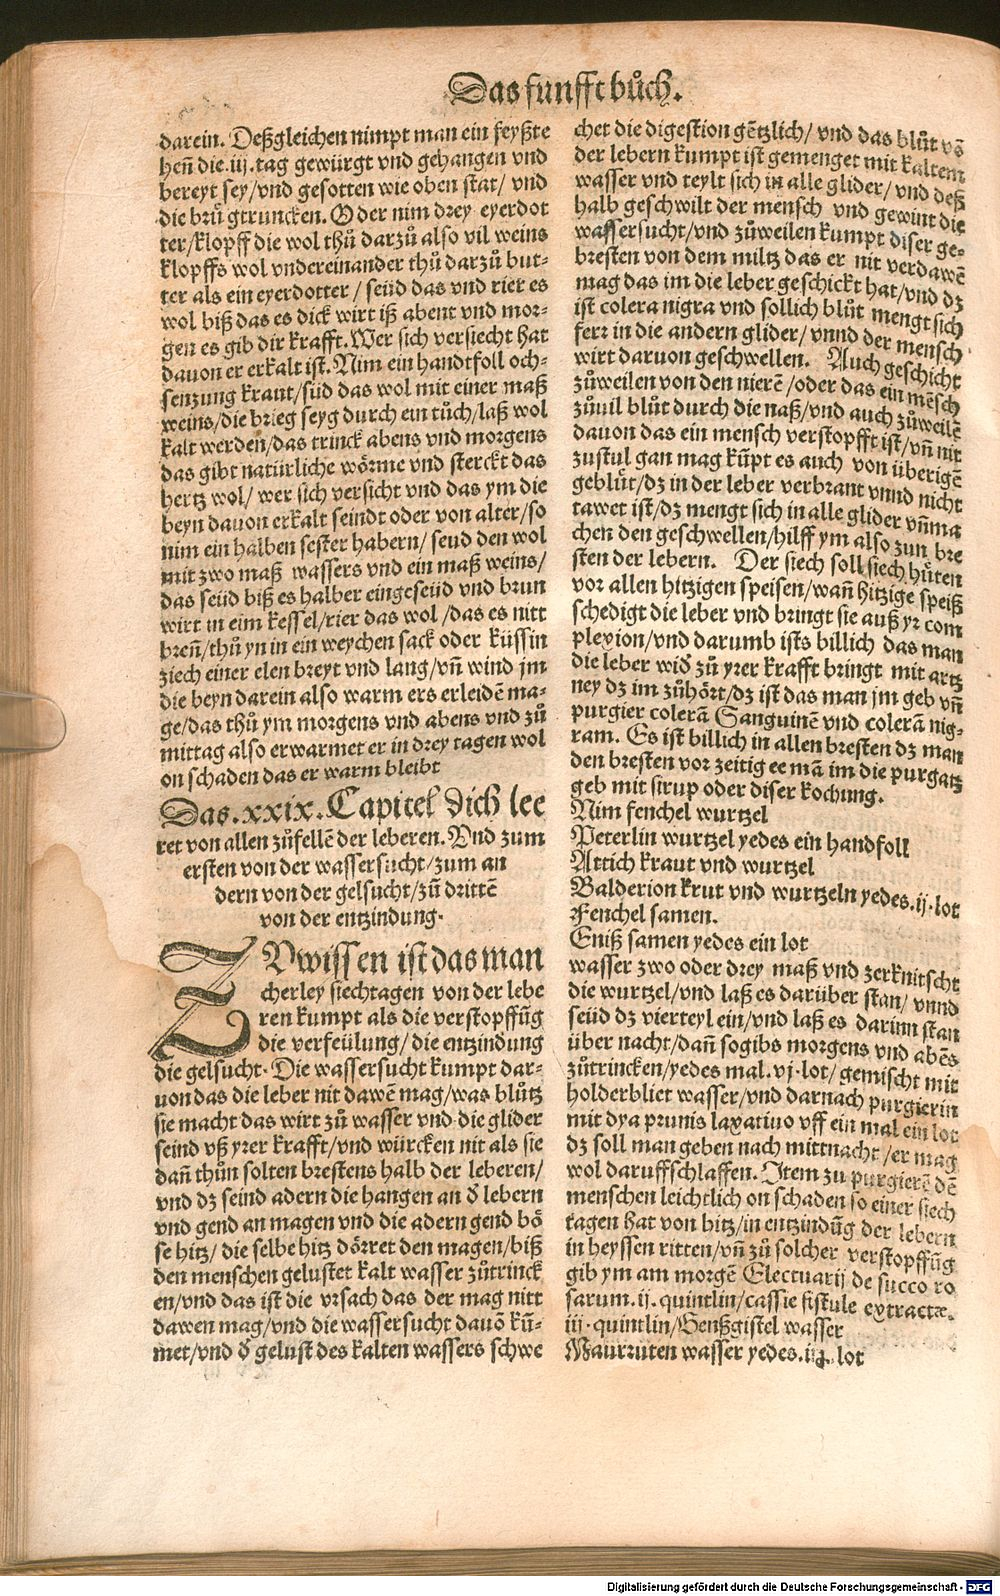 Das funfft bůch.
darein. Deßgleichen nimpt man ein feyßte
hen̄ die .iij. tag gewürgt vnd gehangen vnd
bereyt sey/vnd gesotten wie oben stat/ vnd
die brů gtruncken. Oder nim drey eyerdot
ter/klopff die wol thů darzů also vil weins
klopffs wol vndereinander thů darzů but-
ter als ein eyerdotter / seüd das vnd rier es
wol biß das es dick wirt iß abent vnd mor-
gen es gib dir krafft. Wer sich versiecht hat
dauon er erkalt ist. Nim ein handtfoll och-
senzung kraut/süd das wol mit einer maß
weins/die brieg seyg durch ein tůch/laß wol
kalt werden/das trinck abens vnd morgens
das gibt natürliche wörme vnd sterckt das
hertz wol/ wer sich versicht vnd das ym die
beyn dauon erkalt seindt oder von alter/so
nim ein halben sester habern/ seud den wol
mit zwo maß wassers vnd ein maß weins/
das seüd biß es halber eingeseüd vnd brun
wirt in eim kessel/rier das wol /das es nitt
bren̄/thů yn in ein weychen sack oder küssin
ziech einer elen breyt vnd lang/vn̄ wind jm
die beyn darein also warm ers erleidē ma-
ge/das thů ym morgens vnd abens vnd zů
mittag also erwarmet er in drey tagen wol
on schaden das er warm bleibt
Das .xxix. Capitel dich lee
ret von allen zůfellē der leberen. Vnd zum
ersten von der wassersucht/zum an
dern von der gelsucht/zū drittē
von der entzindung.
ZVwissen ist das man
cherley siechtagen von der lebe
ren kumpt als die verstopffūg
die verfeülung/ die entzindung
die gelsucht. Die wassersucht kumpt dar-
uon das die leber nit dawē mag/was blůtz
sie macht das wirt zů wasser vnd die glider
seind vß yrer krafft/vnd würcken nit als sie
dan̄ thůn solten brestens halb der leberen/
vnd dz seind adern die hangen an ð lebern
vnd gend an magen vnd die adern gend bö
se hitz/ die selbe hitz dörret den magen/biß
den menschen gelustet kalt wasser zůtrinck
en/vnd das ist die vrsach das der mag nitt
dawen mag/vnd die wassersucht dauō kū-
met/vnd ð gelust des kalten wassers schwe
chet die digestion gētzlich/ vnd das blůt vō
der lebern kumpt ist gemenget mit kaltem
wasser vnd teylt sich in alle glider/ vnd deß
halb geschwilt der mensch vnd gewint die
wassersucht/vnd zůweilen kumpt diser ge-
bresten von dem miltz das er nit verdawē
mag das im die leber geschickt hat/vnd dz
ist colera nigra vnd sollich blůt mengt sich
ferr in die andern glider/ vnnd der mensch
wirt daruon geschwellen. Auch geschicht
zůweilen von den nierē /oder das ein mēsch
zůuil blůt durch die naß/vnd auch zůweilē
dauon das ein mensch verstopfft ist/vn̄ nit
zustul gan mag kūpt es auch von überigē
geblüt/dz in der leber verbrant vnnd nicht
tawet ist/dz mengt sich in alle glider vn̄ma
chen den geschwellen/hilff ym also zun bre
sten der lebern. Der siech soll siech hüten
vor allen hitzigen speisen/wan̄ hitzige speiß
schedigt die leber vnd bringt sie auß yr com
plexion/vnd darumb ists billich das man
die leber wið zů yrer krafft bringt mit artz
ney dz im zůhört/dz ist das man jm geb vn̄
purgier colerā Sanguinē vnd colerā nig-
ram. Es ist billich in allen bresten dz man
den bresten vor zeitig ee mā im die purgatz
geb mit sirup oder diser kochung.
Nim fenchel wurtzel
Peterlin wurtzel yedes ein handfoll
Attich kraut vnd wurtzel
Balderion krut vnd wurtzeln yedes .ij. lot
Fenchel samen.
Eniß samen yedes ein lot
wasser zwo oder drey maß vnd zerknitscht
die wurtzel/vnd laß es darüber stan/ vnnd
seüd dz vierteyl ein/vnd laß es darinn stan
über nacht/dan̄ sogibs morgens vnd abēs
zůtrincken/yedes mal .vj. lot/ gemischt mit
holderbliet wasser/vnd darnach purgierin
mit dya prunis laxatiuo vff ein mal ein lot
dz soll man geben nach mittnacht /er mag
wol daruffschlaffen. Item zu purgierē dē
menschen leichtlich on schaden so einer siech
tagen hat von hitz/in entzindūg der lebern
in heyssen ritten/vn̄ zů solcher verstopffūg
gib ym am morgē Electuarij de succo ro
sarum .ij. quintlin/cassie fistule extractæ.
iij. quintlin/Genßgistel wasser
Maurruten wasser yedes lot
Digitalisierung gefördert durch die Deutsche Forschungsgemeinschaft - DFG